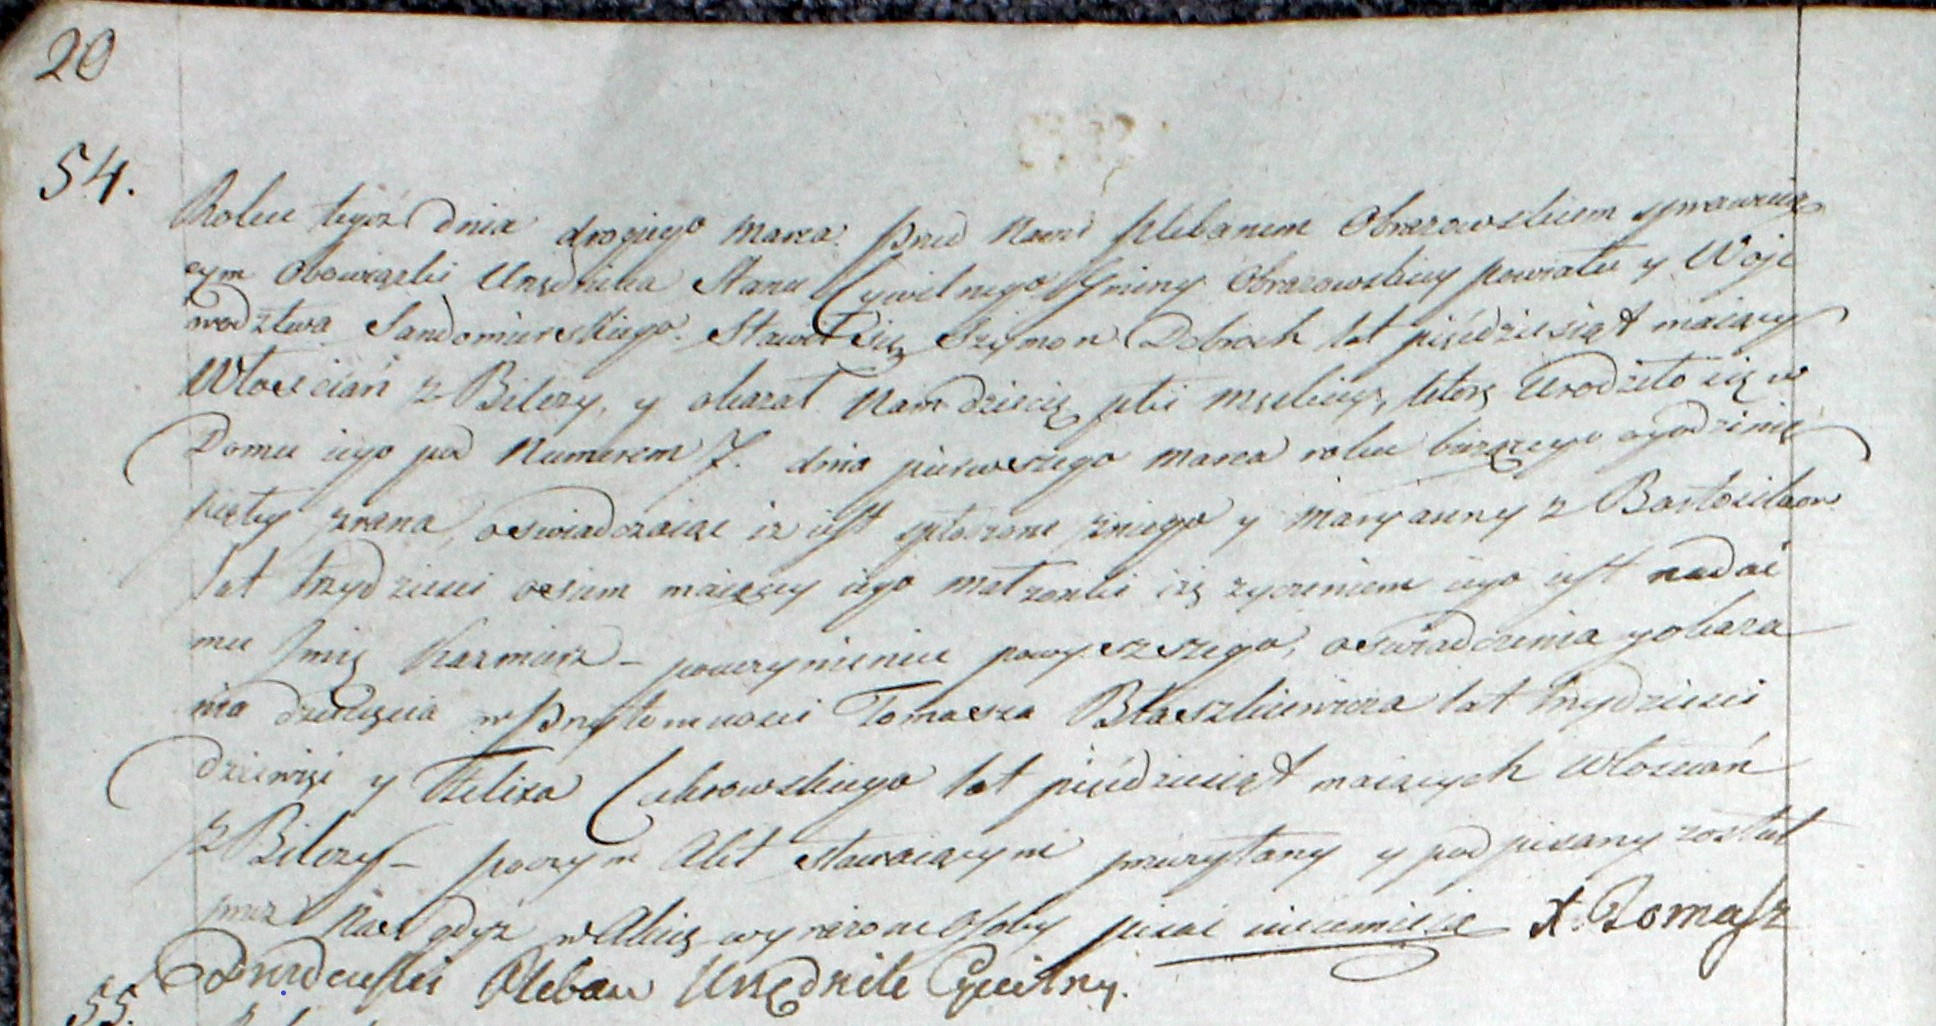 20
54.
Roku tegoż dnia drogiego Marca. przed Nami Plebanem Obrazowskiem sprawuią
cym Obowiązki Urzędnika Stanu Cywilnego Gminy Obrazowskiey powiatu y Woje
wodztwa Sandomirskiego. Stawił się Szymon Dobroch lat pięćdziesiąt maiący
Włoscian z Bilczy, y okazał Nam dziecię płci męskiey, ktorę Urodziło się w
Domu iego pod Numerem 7. dnia pierwszego Marca roku bieżącego ogodzinie
piątey zrana, oswiadczaiąc iz iest spłodzone zniego y Maryanny z Bartosikow
lat trzydzieści osiem maiącey iego małzonki iż zyczeniem iego iest nadać
mu Imię Kazmierz – pouczynieniu powyższego, oswiadczenia y okaza
nia dziecięcia w przytomnosci Tomasza Błaszkiewicza lat trzydzieści
dziewięć y Felixa Cukrowskiego lat pięćdziesiąt maiących Włoscian
z Bilczy – poczym Akt stawaiącymi przeczytany y podpisany został
przez Nas gdyż w Akcie wyrażone Osoby pisać nieumieią X. Tomasz
Pleban Urzędnik Cywilny.
55.